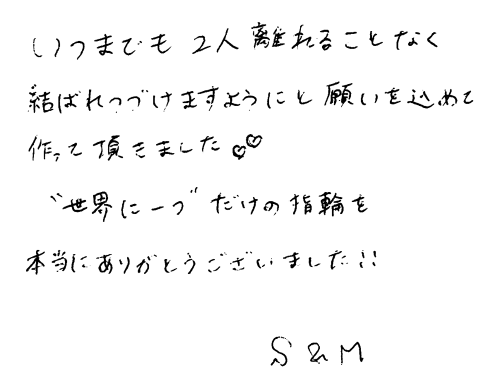 いつまでも 2人 離れることなく
結ばれつづけますようにと 願いを込めて
作って頂きました♡♡
"世界に一つ"だけの指輪を
本当にありがとうございました!!
S&M